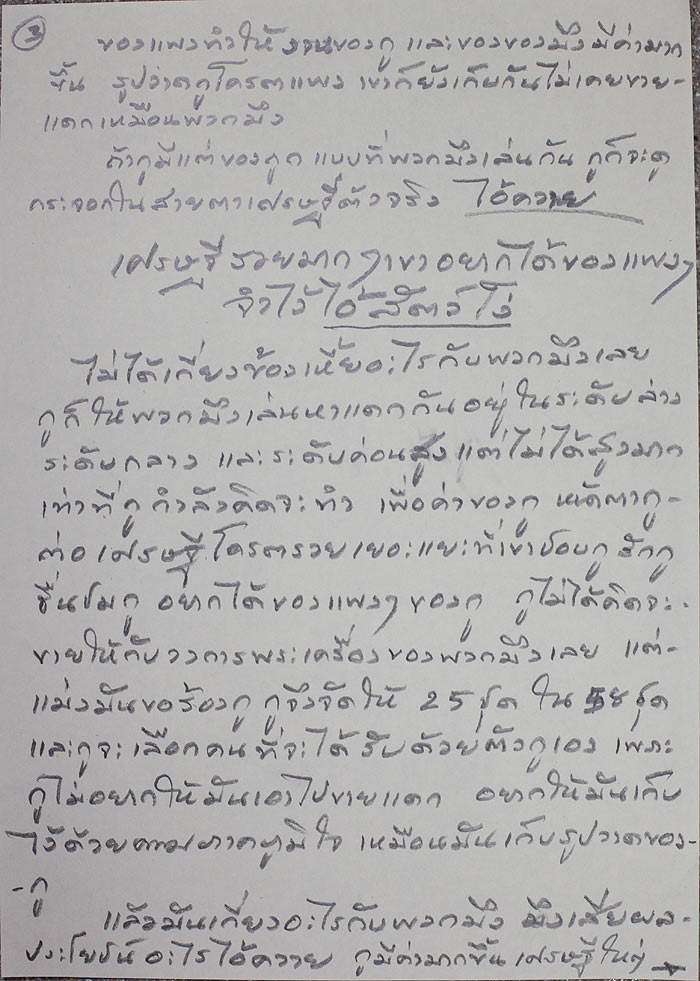 ③
ของแพงทำให้งานของกู และของของมึงมีค่ามาก
ขึ้น รูปวาดกูโครตแพง เขาก็ยังเก็บกันไม่เคยขาย-
แดกเหมือนพวกมึง
ถ้ากูมีแต่ของถูก แบบที่พวกมึงเล่นกัน กูก็จะดู
กระจอกในสายตาเศรษฐีตัวจริง ไอ้ควาย
เศรษฐีรวยมากๆเขาอยากได้ของแพงๆ
จำไว้ไอ้สัตว์โง่
ไม่ได้เกี่ยงข้องเหี้ยอะไรกับพวกมึงเลย
กูก็ให้พวกมึงเล่นหาแดกกันอยู่ในระดับล่าง
ระดับกลาง และระดับค่อนสูง แต่ไม่ได้สูงมาก
เท่าที่กูกำลังคิดจะทำ เพื่อค่าของกู หน้าตากู-
ต่อเศรษฐีโครตรวยเยอะแยะที่เขาชอบกู รักกู
ชื่นชมกู อยากได้ของแพงๆ ของกู กูไม่ได้คิดจะ-
ขายให้กับวงการพระเครื่องของพวกมึงเลย แต่-
แม่งมันขอร้องกู กูจึงจัดให้ 25 ชุด ใน 58 ชุด
และกูจะเลือกคนที่จะได้รับด้วยตัวกูเอง เพราะ
กูไม่อยากให้มันเอาไปขายแดก อยากให้มันเก็บ
ไว้ด้วยความภาคภูมิใจ เหมือนมันเก็บรูปวาดของ-
-กู
แล้วมันเกี่ยวอะไรกับพวกมึง มึงเสียผล-
ประโยชน์อะไรไอ้ควาย กูมีค่ามากขึ้น เศรษฐีใหญ่